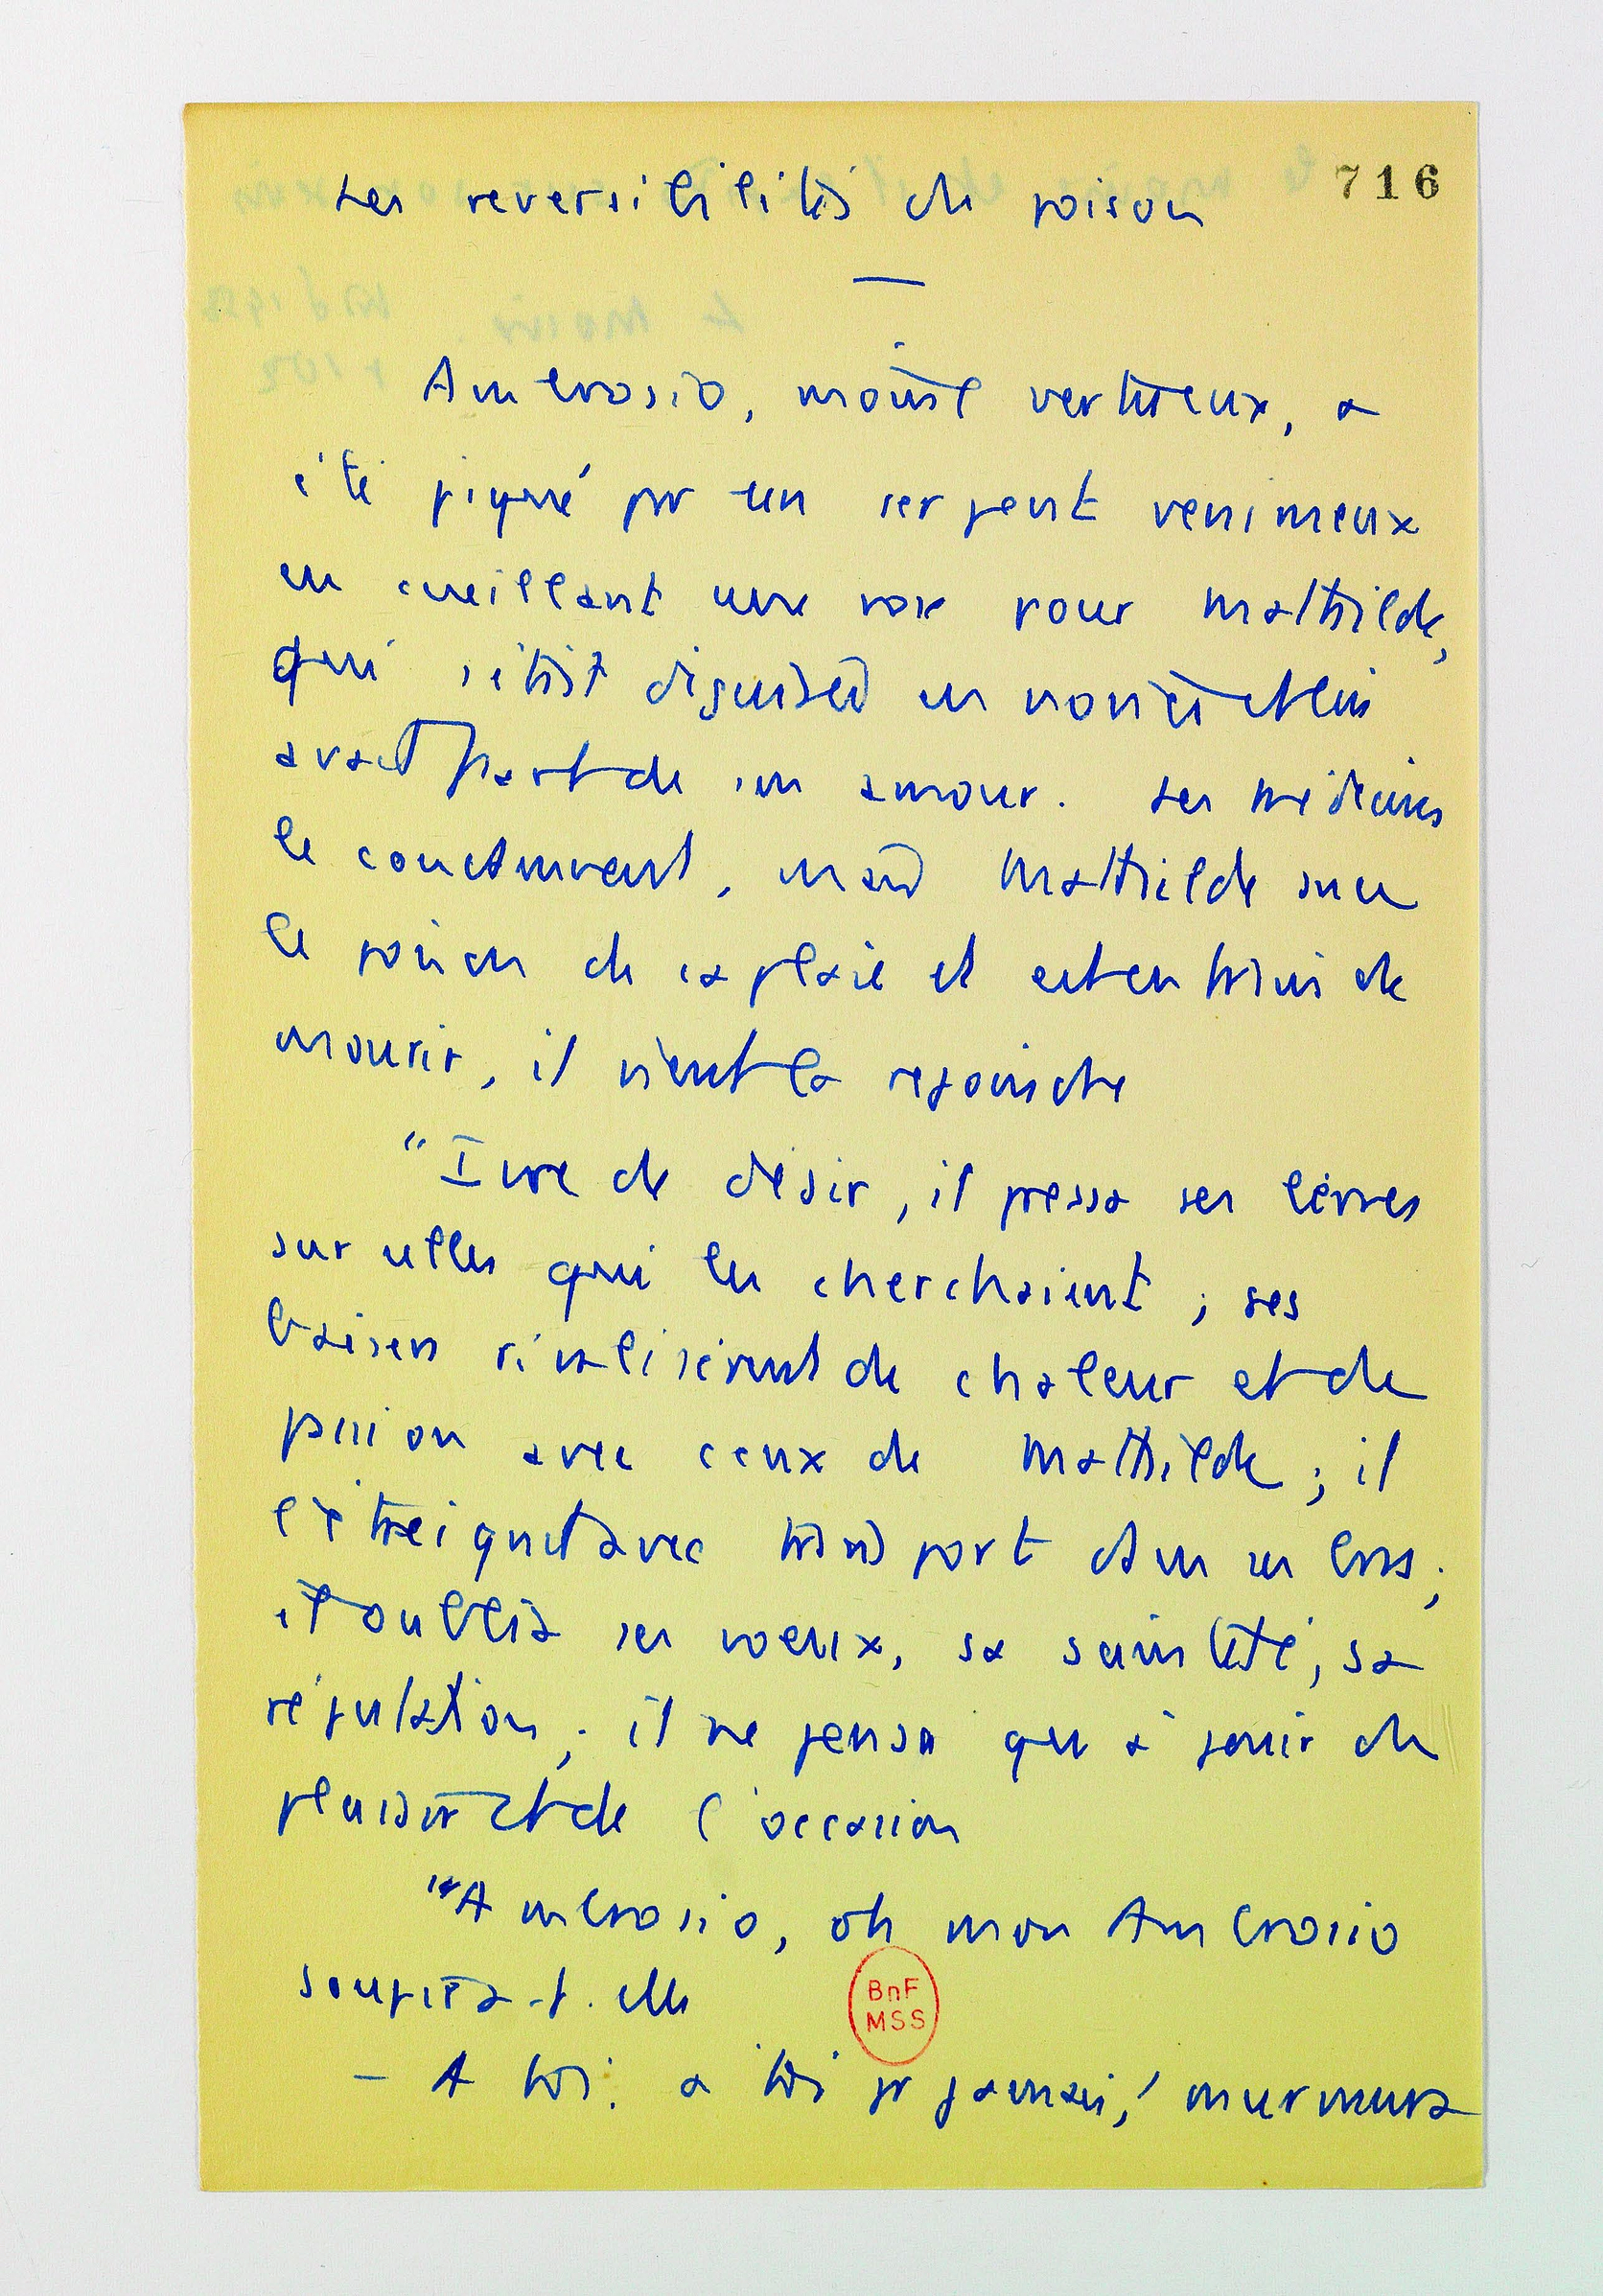 716
Les reversibilités du poison
Ambrosio, moine vertueux, a
été piqué par un serpent venimeux
en cueillant une rose pour Mathilde,
qui s'était déguisée en novice et lui
avait fait de son amour. Les médecins
le condamnent, mais Mathilde suce
le poison de sa plaie et est en train de
mourir, il vient la rejoindre
"Ivre de désir, il pressa ses lèvres
sur celles qui les cherchaient ; ses
baisers rivalisèrent de chaleur et de
passion avec ceux de Mathilde ; il
l'étreignit avec transport dans ses bras ;
il oublia ses voeux, sa sainteté, sa
réputation ; il ne pensa qu'à jouir du
plaisir et de l'occasion
"Ambrosio, oh mon Ambrosio
soupira-t-elle
BnF
MSS
- A toi, à toi pr jamais, ! murmura